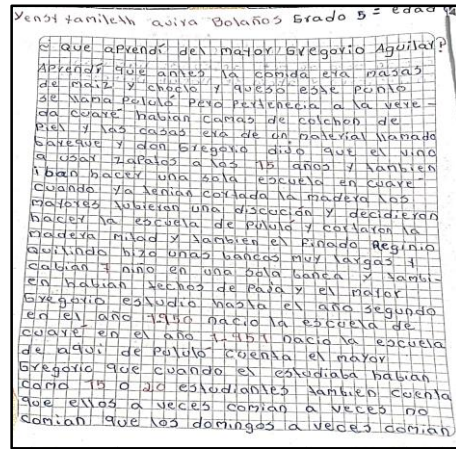 Yensy Yamileth avira Bolaños Grado 5 = edad
¿ que aprendí del mayor Gregorio Aguilar?
Aprendí que antes la comida era masas
de maiz y choclo y queso este punto
se llama Pululó pero pertenecia a la vere-
da cuaré habian camas de colchon de
piel y las casas era de un material llamado
bareque y don Gregorio dijo que el vino
a usar zapatos a los 15 años y tambien
iban hacer una sola escuela en cuaré
cuando ya tenian cortada la madera los
mayores tubieron una discución y decidieron
hacer la escuela de pululó y cortaron la
madera mitad y tambien el finado Reginio
Quilindo hizo unas bancas muy largas y
cabian 7 niño en una sola banca y tambi-
en habian techos de paja y el mayor
Gregorio estudio hasta el año segundo
en el año 1-950 nacio la escuela de
cuaré en el año 1-951 nacio la escuela
de aqui de pululó cuenta el mayor
Gregorio que cuando el estudiaba habian
como 15 o 20 estudiantes tambien cuenta
que ellos a veces comian a veces no
comian que los domingos a veces comian